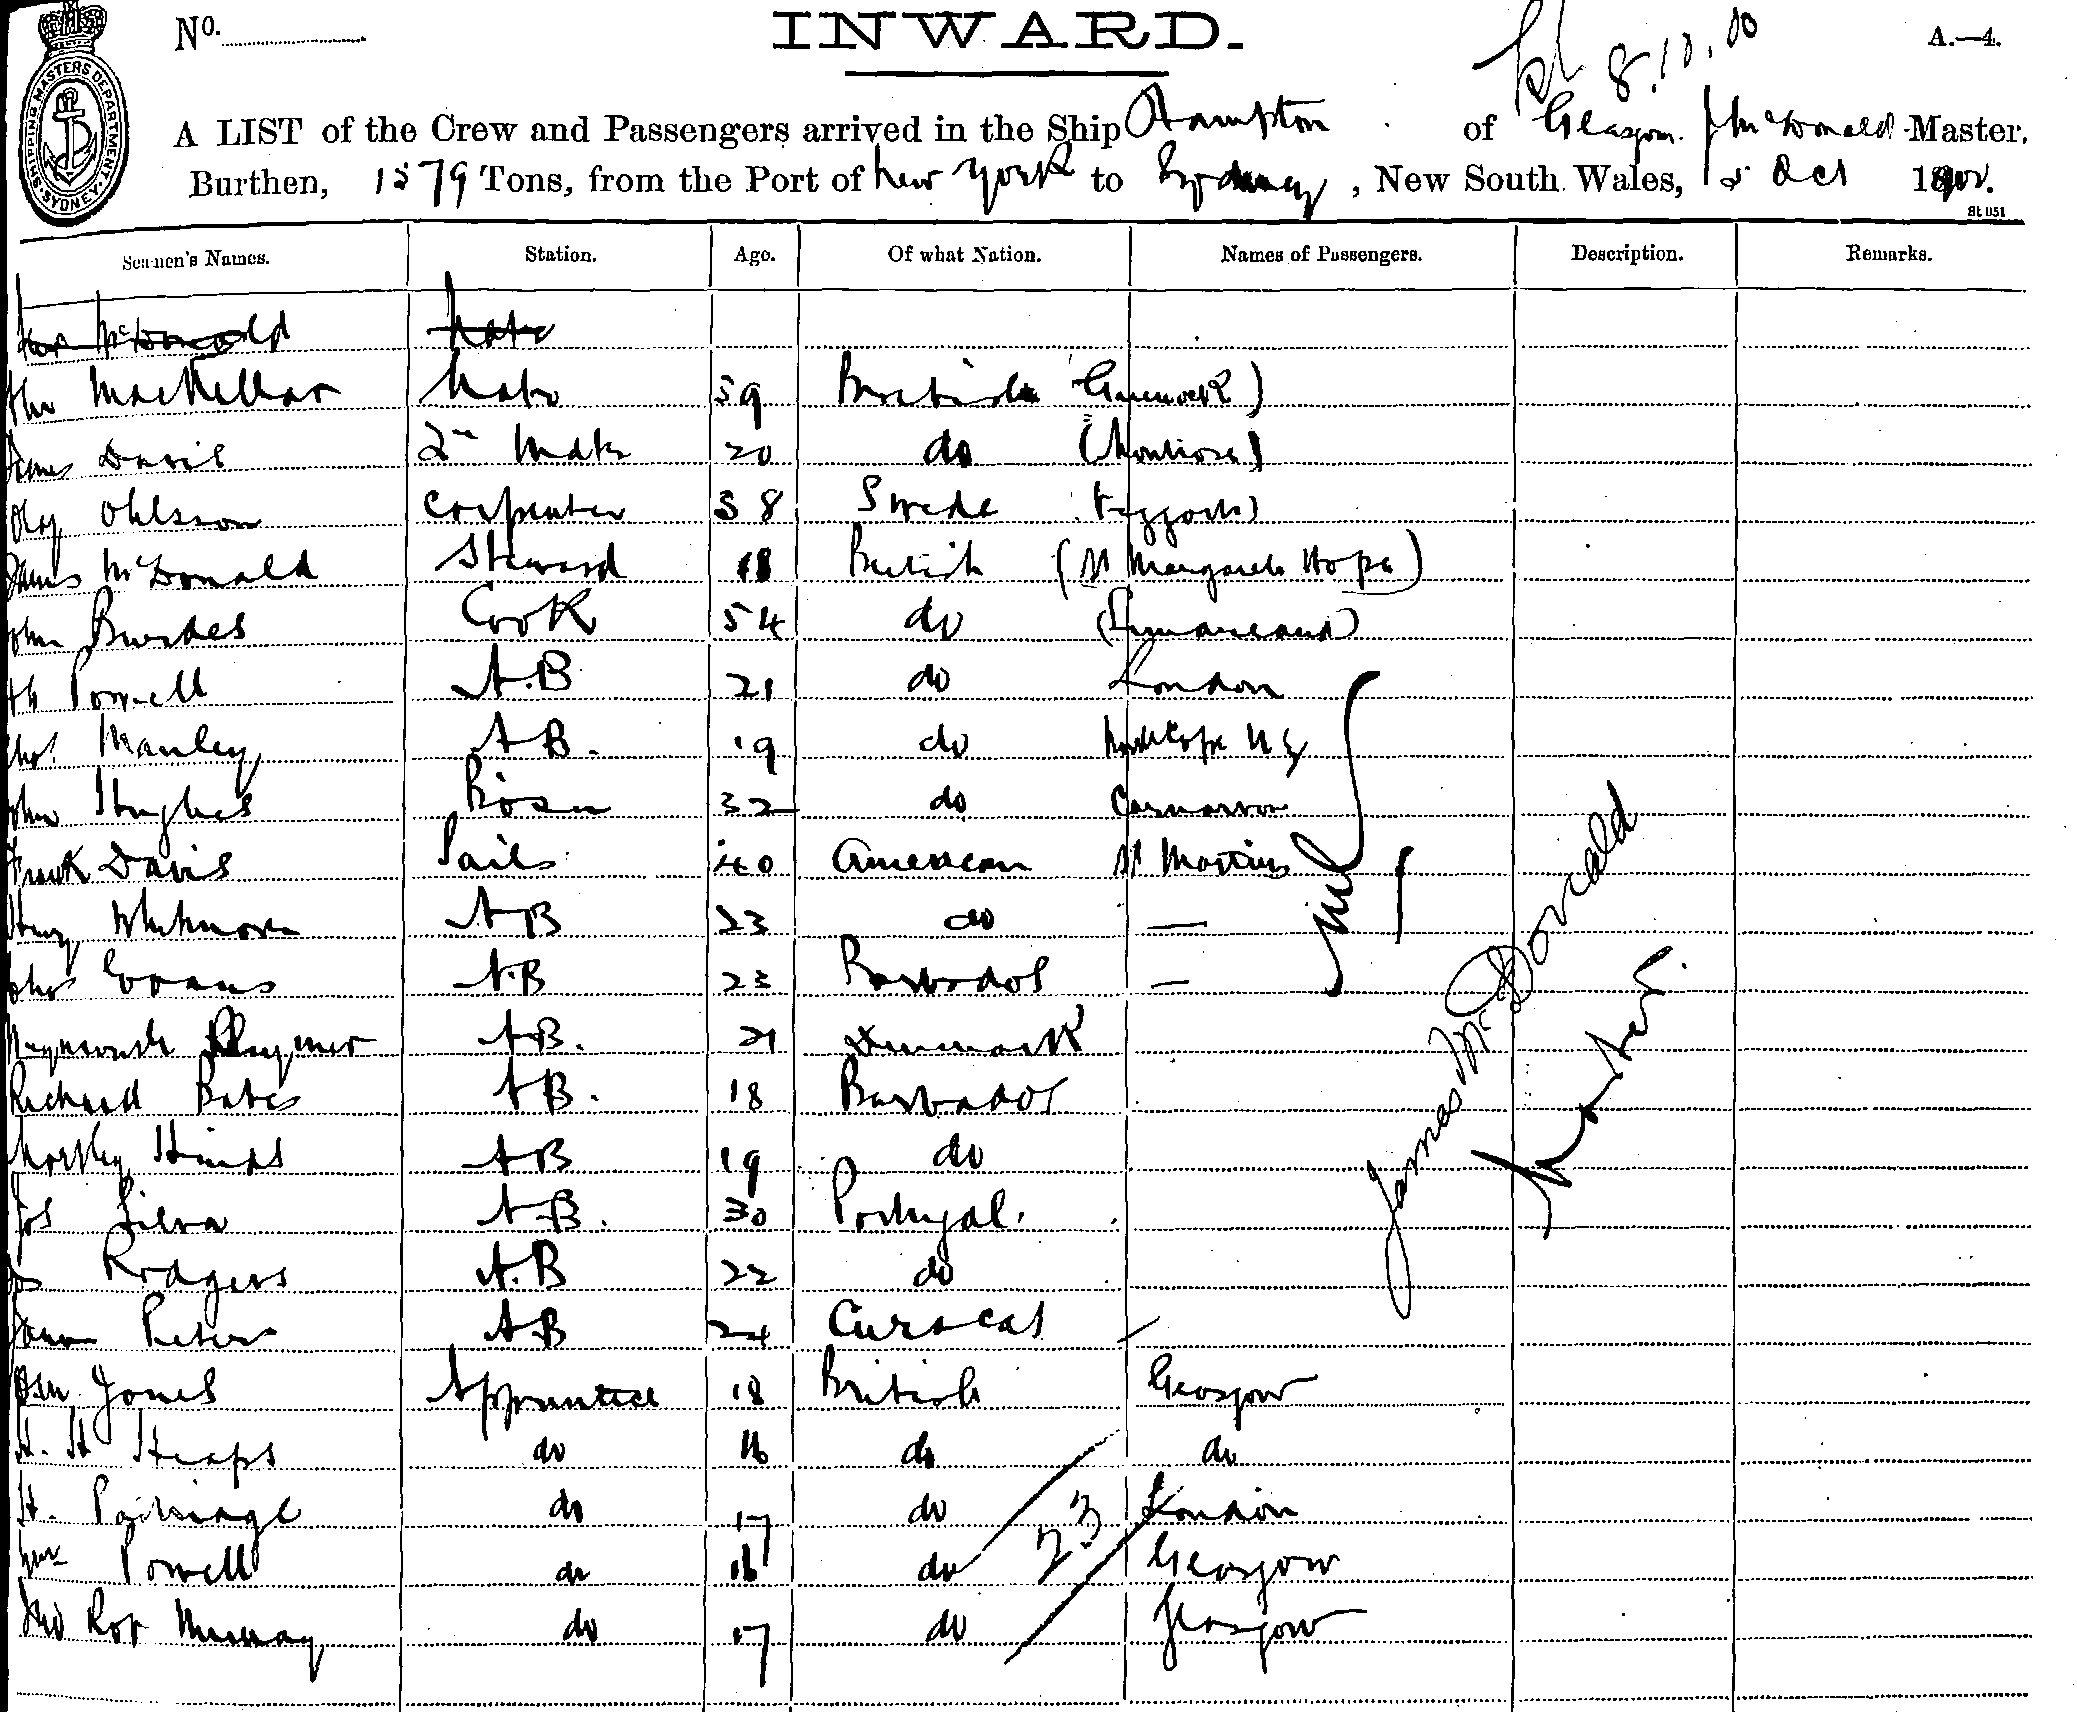 No.
INWARD.
8.10.00
A.—4.
SHIPPING MASTERS DEPARTMENT. SYDNEY.
A LIST of the Crew and Passengers arrived in the Ship Hampton of Glasgow. J McDonald Master,
Burthen, 1579 Tons, from the Port of New York to Sydney, New South Wales, 5 Oct
St 051
Seamen's Names. Station. Age. Of what Nation. Names of Passengers. Description. Remarks.
McDonald Mate
John MacKellar Mate 59 British Greenock)
James Davis 2nd Mate 20 do (Montrose)
Olaf Ohlsson Carpenter 38 Swede
James McDonald Steward 18 British (St Margarets Hope)
John Cook 54 do
Powell A.B 21 do London
Thos Manley A B. 19 do
John Hughes Bosn 32 do Carnarvon
Frank Davis Sails 40 American St Martins
Henry Whitmore A B 23 do —
Evans A.B 23 Barbados —
A B. 21 Denmark
Richard Bates A B. 18 Barbados
Hinds A B 19 do
Jos Silva A B. 30 Portugal.
Rodgers A.B 22 do
Peters A B 24 Curacas
Jones Apprentice 18 British Glasgow
H. H Heaps do 16 do do
H. Partridge do 17 do London
Wm Powell do 16 do Glasgow
Murray do 17 do Glasgow
23
nil
James McDonald
Master.